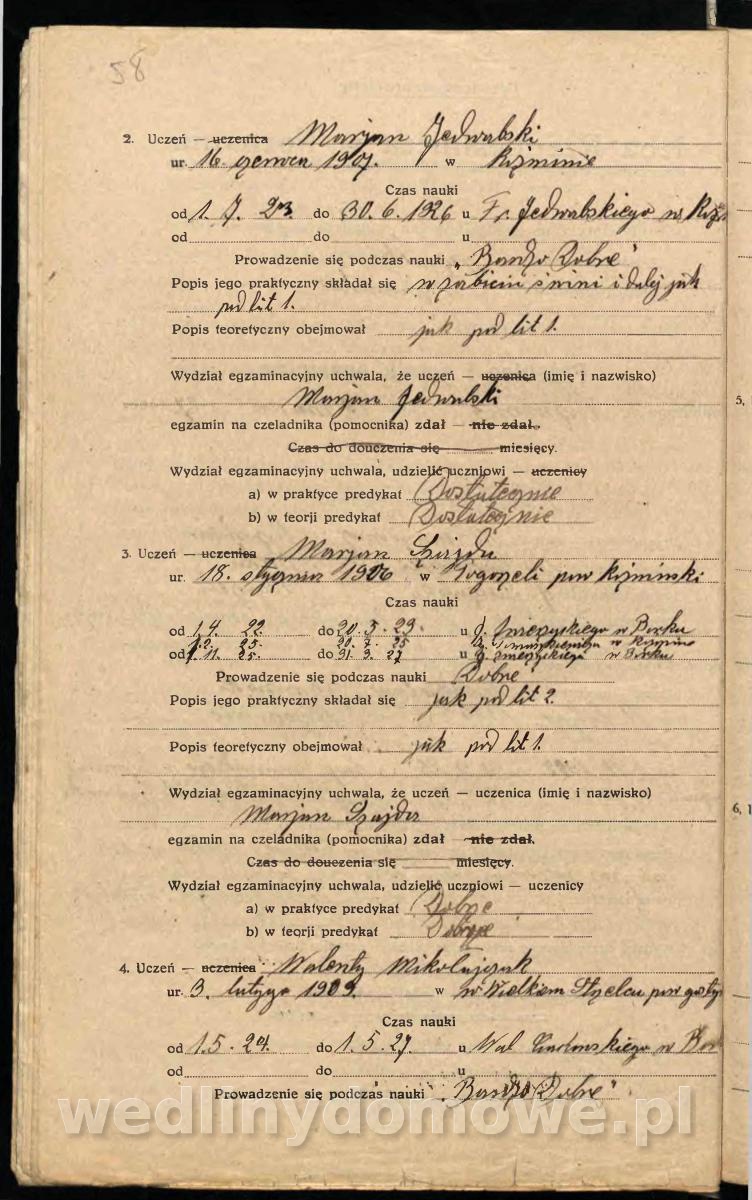 58
2. Uczeń — uczenica Marjan Jedwabski
ur. 16 czerwca 1907. w Koźminie
Czas nauki
od 1. 7. 23. do 30. 6. 1926 u Fr. Jedwabskiego w
od do u
Prowadzenie się podczas nauki „Bardzo Dobre"
Popis jego praktyczny składał się w zabiciu świni i dalej jak
pod lit 1.
Popis teoretyczny obejmował jak pod lit 1.
Wydział egzaminacyjny uchwala, że uczeń — uczenica (imię i nazwisko)
Marjan Jedwabski
5,
egzamin na czeladnika (pomocnika) zdał — nie zdał.
Czas do douczenia się miesięcy.
Wydział egzaminacyjny uchwala, udzielić uczniowi — uczenicy
a) w praktyce predykat Dostatecznie
b) w teorji predykat Dostatecznie
3. Uczeń — uczenica Marjan Szajda
ur. 18. stycznia 1906 w Pogorzeli pow koźmiński
Czas nauki
od 1.4. 22. do 20. 5. 23 u w Borku
do 31. 3. 27 u w Borku
Prowadzenie się podczas nauki „Dobre"
Popis jego praktyczny składał się jak pod lit 2.
Popis teoretyczny obejmował jak pod lit 1.
Wydział egzaminacyjny uchwala, że uczeń — uczenica (imię i nazwisko)
Marjan Szajda
6, 1
egzamin na czeladnika (pomocnika) zdał — nie zdał.
Czas do douczenia się miesięcy.
Wydział egzaminacyjny uchwala, udzielić uczniowi — uczenicy
a) w praktyce predykat Dobrze
b) w teorji predykat Dobrze
4. Uczeń — uczenica Walenty Mikołajczak
ur. 3. lutego 1909. w w Wielkiem Strzelcu pow
Czas nauki
od 1. 5. 24. do 1. 5. 27. u Wal w
od do u
Prowadzenie się podczas nauki „Bardzo Dobre"
wedlinydomowe.pl